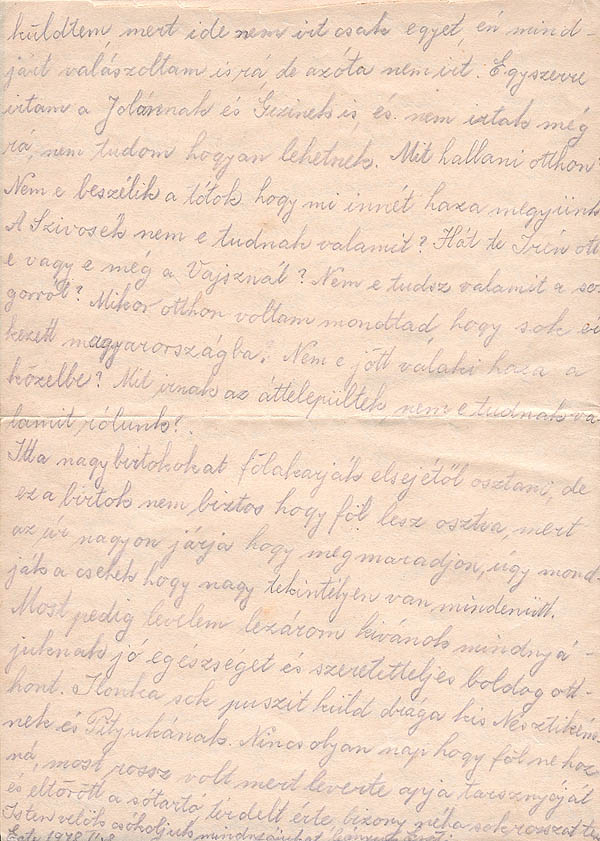 küldtem, mert ide nem irt csak egyet, én mind-
járt valászoltam is rá, de azóta nem irt. Egyszerre
irtam a Jolánnak és Gizinek is, és nem irtak még
rá, nem tudom hogyan lehetnek. Mit hallani otthon?
Nem e beszélik a tótok hogy mi innét haza megyünk
A Szivosék nem e tudnak valamit? Hát te Irén ott
e vagy e még a Vajsznál? Nem e tudsz valamit a so-
gorról? Mikor otthon voltam monottad, hogy sok ér
kezett magyarországba? Nem e jött valaki haza a
közelbe? Mit irnak az áttelepültek nem e tudnak va-
lamit rólunk?
Itt a nagybirtokokat fölakarják elsejétől osztani, de
ez a birtok nem biztos hogy föl lesz osztva, mert
az úr nagyon járja hogy megmaradjon, úgy mond-
ják a csehek hogy nagy tekintélyen van mindenütt.
Most pedig levelem lezárom kivánok mindnyá-
juknak jó egészséget és szeretetteljes boldog ott-
hont. Ilonka sok puszit küld drága kis
nek és Pityukának. Nincs olyan nap hogy föl ne hoz-
ná, most rossz volt mert leverte apja tarsznyáját
és eltörött a sótartó térdelt érte, bizony néha sok rosszat tesz
Isten velök csókoljuk mindnyájukat